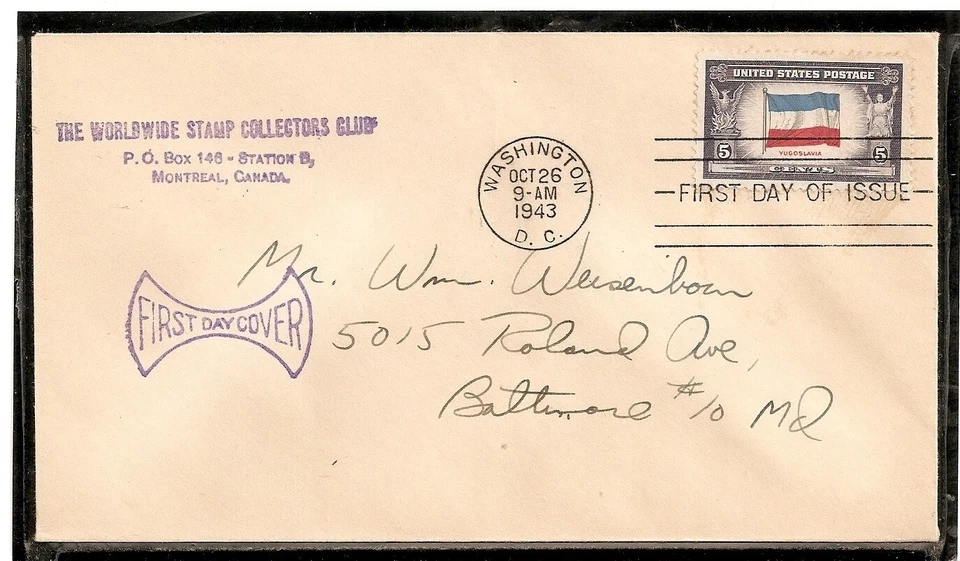 THE WORLDWIDE STAMP COLLECTORS CLUB
P.O. BOX 146 - STATION B,
MONTREAL, CANADA.
UNITED STATES POSTAGE
5 5
YUGOSLAVIA
CENTS
WASHINGTON
OCT 26
9-AM
1943
D. C.
FIRST DAY OF ISSUE
FIRST DAY COVER
Mr. Wm. Weisenborn
5015 Roland Ave,
Baltimore #10 Md